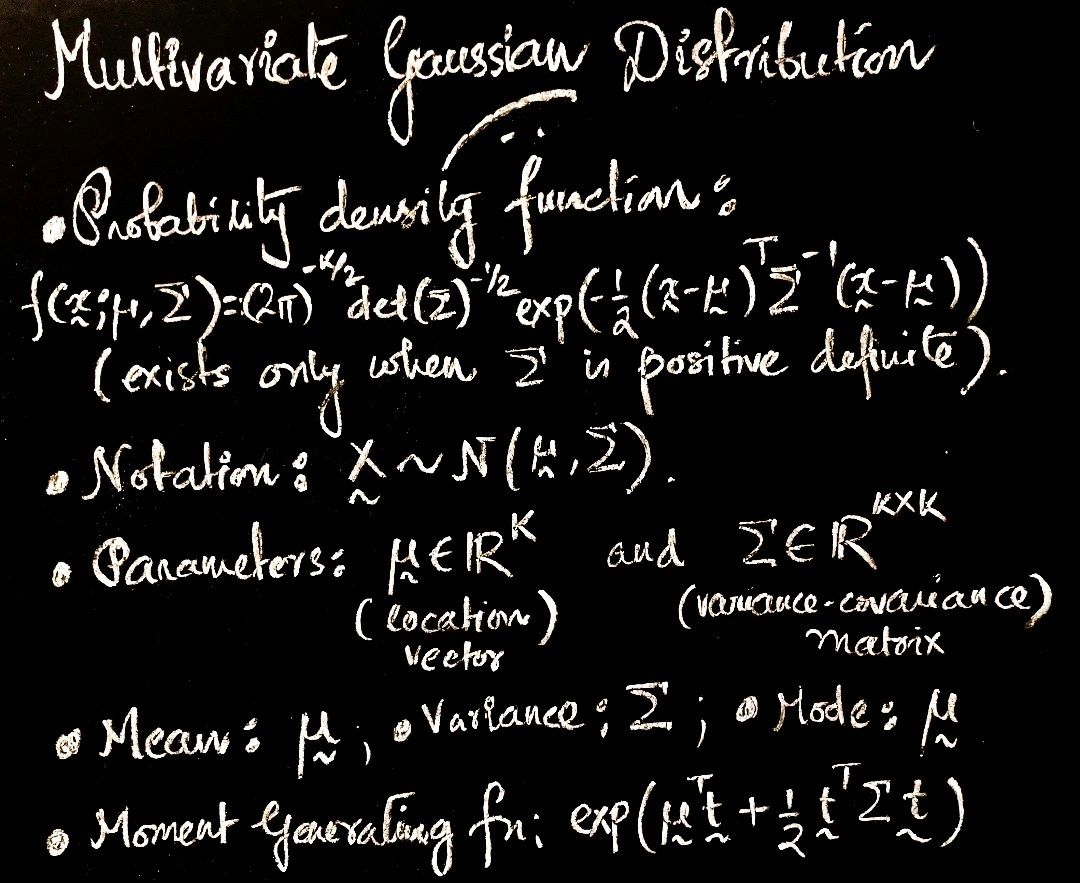 Multivariate Gaussian Distribution
• Probability density function:
f(x̰; μ, Σ) = (2π)^{-K/2} det(Σ)^{-1/2} exp(-1/2 (x̰-μ̰)^T Σ^{-1} (x̰-μ̰))
(exists only when Σ is positive definite).
• Notation: X̰ ~ N(μ̰, Σ).
• Parameters: μ̰ ∈ ℝ^K and Σ ∈ ℝ^{K×K}
(location) (variance-covariance)
vector matrix
• Mean: μ̰ ; • Variance: Σ ; • Mode: μ̰
• Moment Generating fn: exp(μ̰^T t̰ + 1/2 t̰^T Σ t̰)